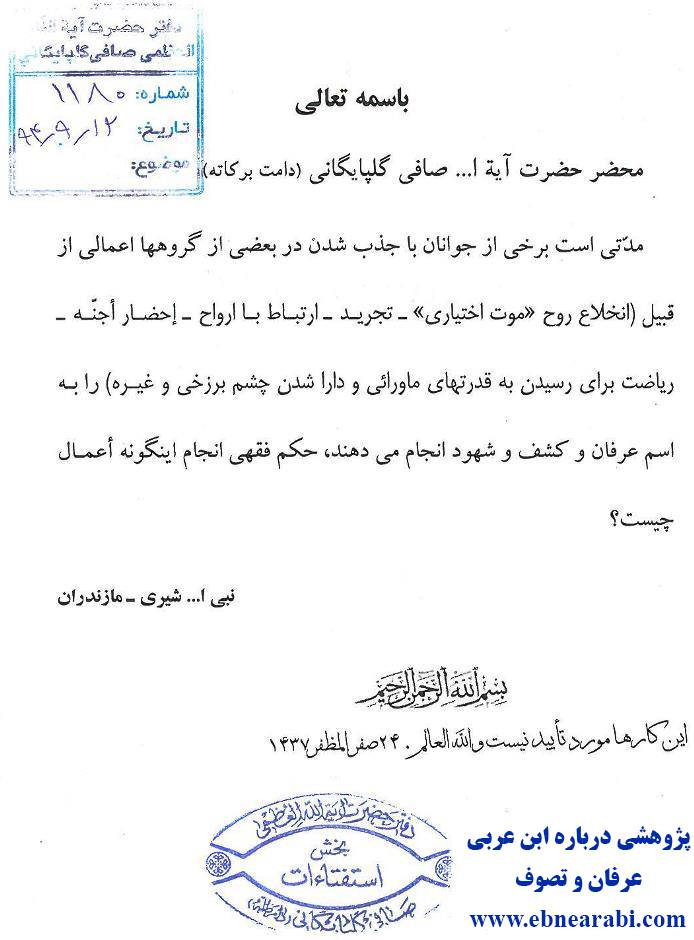 دفتر حضرت آیة الله
العظمی صافی گلپایگانی
شماره: ۱۱۸۰
تاریخ: ۹۴٫۹٫۱۲
موضوع:
باسمه تعالی
محضر حضرت آیة ا... صافی گلپایگانی (دامت برکاته)
مدّتی است برخی از جوانان با جذب شدن در بعضی از گروهها اعمالی از
قبیل (انخلاع روح «موت اختیاری» ـ تجرید ـ ارتباط با ارواح ـ إحضار أجنّه ـ
ریاضت برای رسیدن به قدرتهای ماورائی و دارا شدن چشم برزخی و غیره) را به
اسم عرفان و کشف و شهود انجام می دهند، حکم فقهی انجام اینگونه أعمال
چیست؟
نبی ا... شیری ـ مازندران
بسم الله الرحمن الرحیم
این کارها مورد تأیید نیست والله العالم. ۲۴ صفر المظفر ۱۴۳۷
دفتر حضرت آیة الله العظمی
بخش
استفتاءات
صافی گلپایگانی
پژوهشی درباره ابن عربی
عرفان و تصوف
www.ebnearabi.com